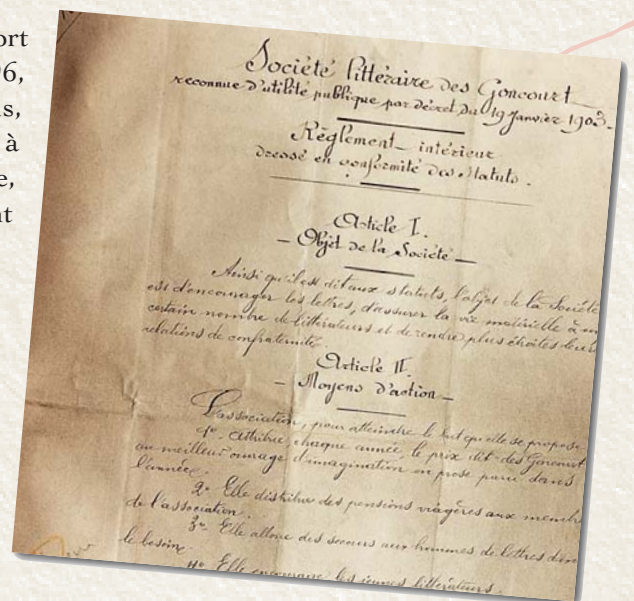 ort
96,
s,
à
e,
nt
Société littéraire des Goncourt
reconnue d'utilité publique par décret du 19 Janvier 1903.
Règlement intérieur
dressé en conformité des Statuts.
Article I.
— Objet de la Société —
Ainsi qu'il est dit aux statuts, l'objet de la Société
est d'encourager les lettres, d'assurer la vie matérielle à un
certain nombre de littérateurs et de rendre plus étroites leurs
relations de confraternité.
Article II.
— Moyens d'action —
L'association, pour atteindre le but qu'elle se propose
1º Attribue chaque année le prix dit des Goncourt
au meilleur ouvrage d'imagination en prose paru dans
l'année.
2º Elle distribue des pensions viagères aux memb
de l'association.
3º Elle alloue des secours aux hommes de lettres dans
le besoin.
4º Elle encourage les jeunes littérateurs.